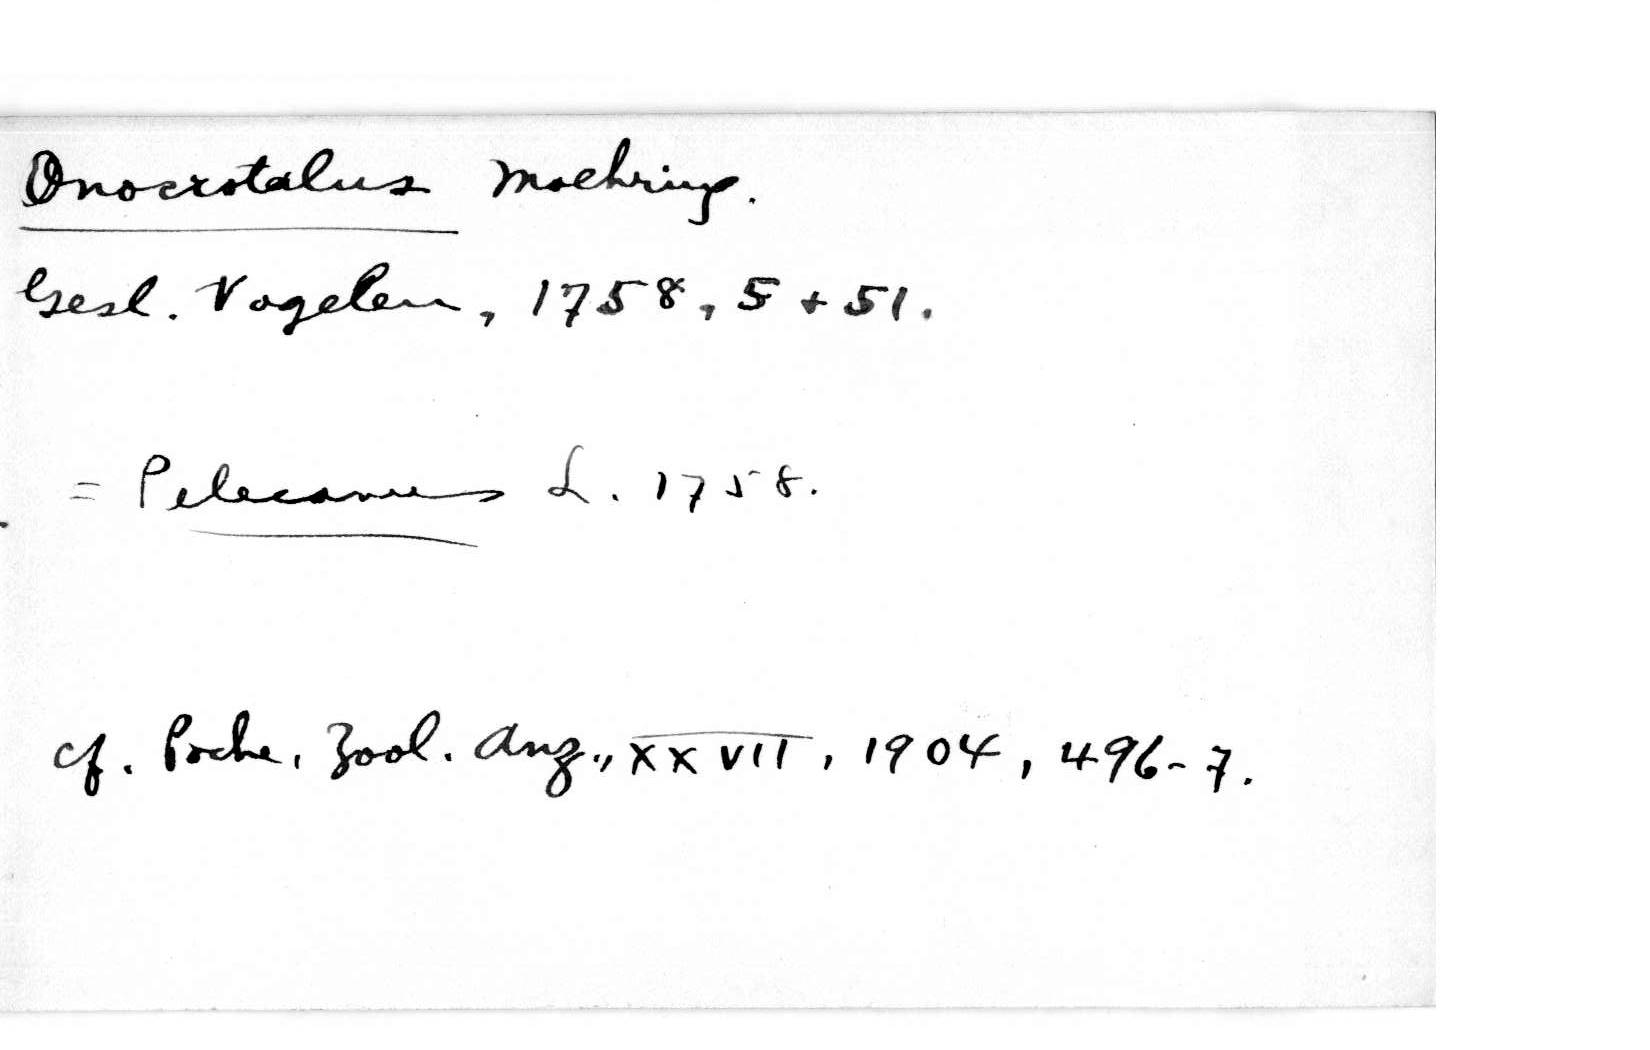 Onocrotalus Moehring.
Gesl. Vogelen, 1758, 5 + 51.
= Pelecanus L. 1758.
cf. Poche, Zool. Anz., XXVII, 1904, 496-7.